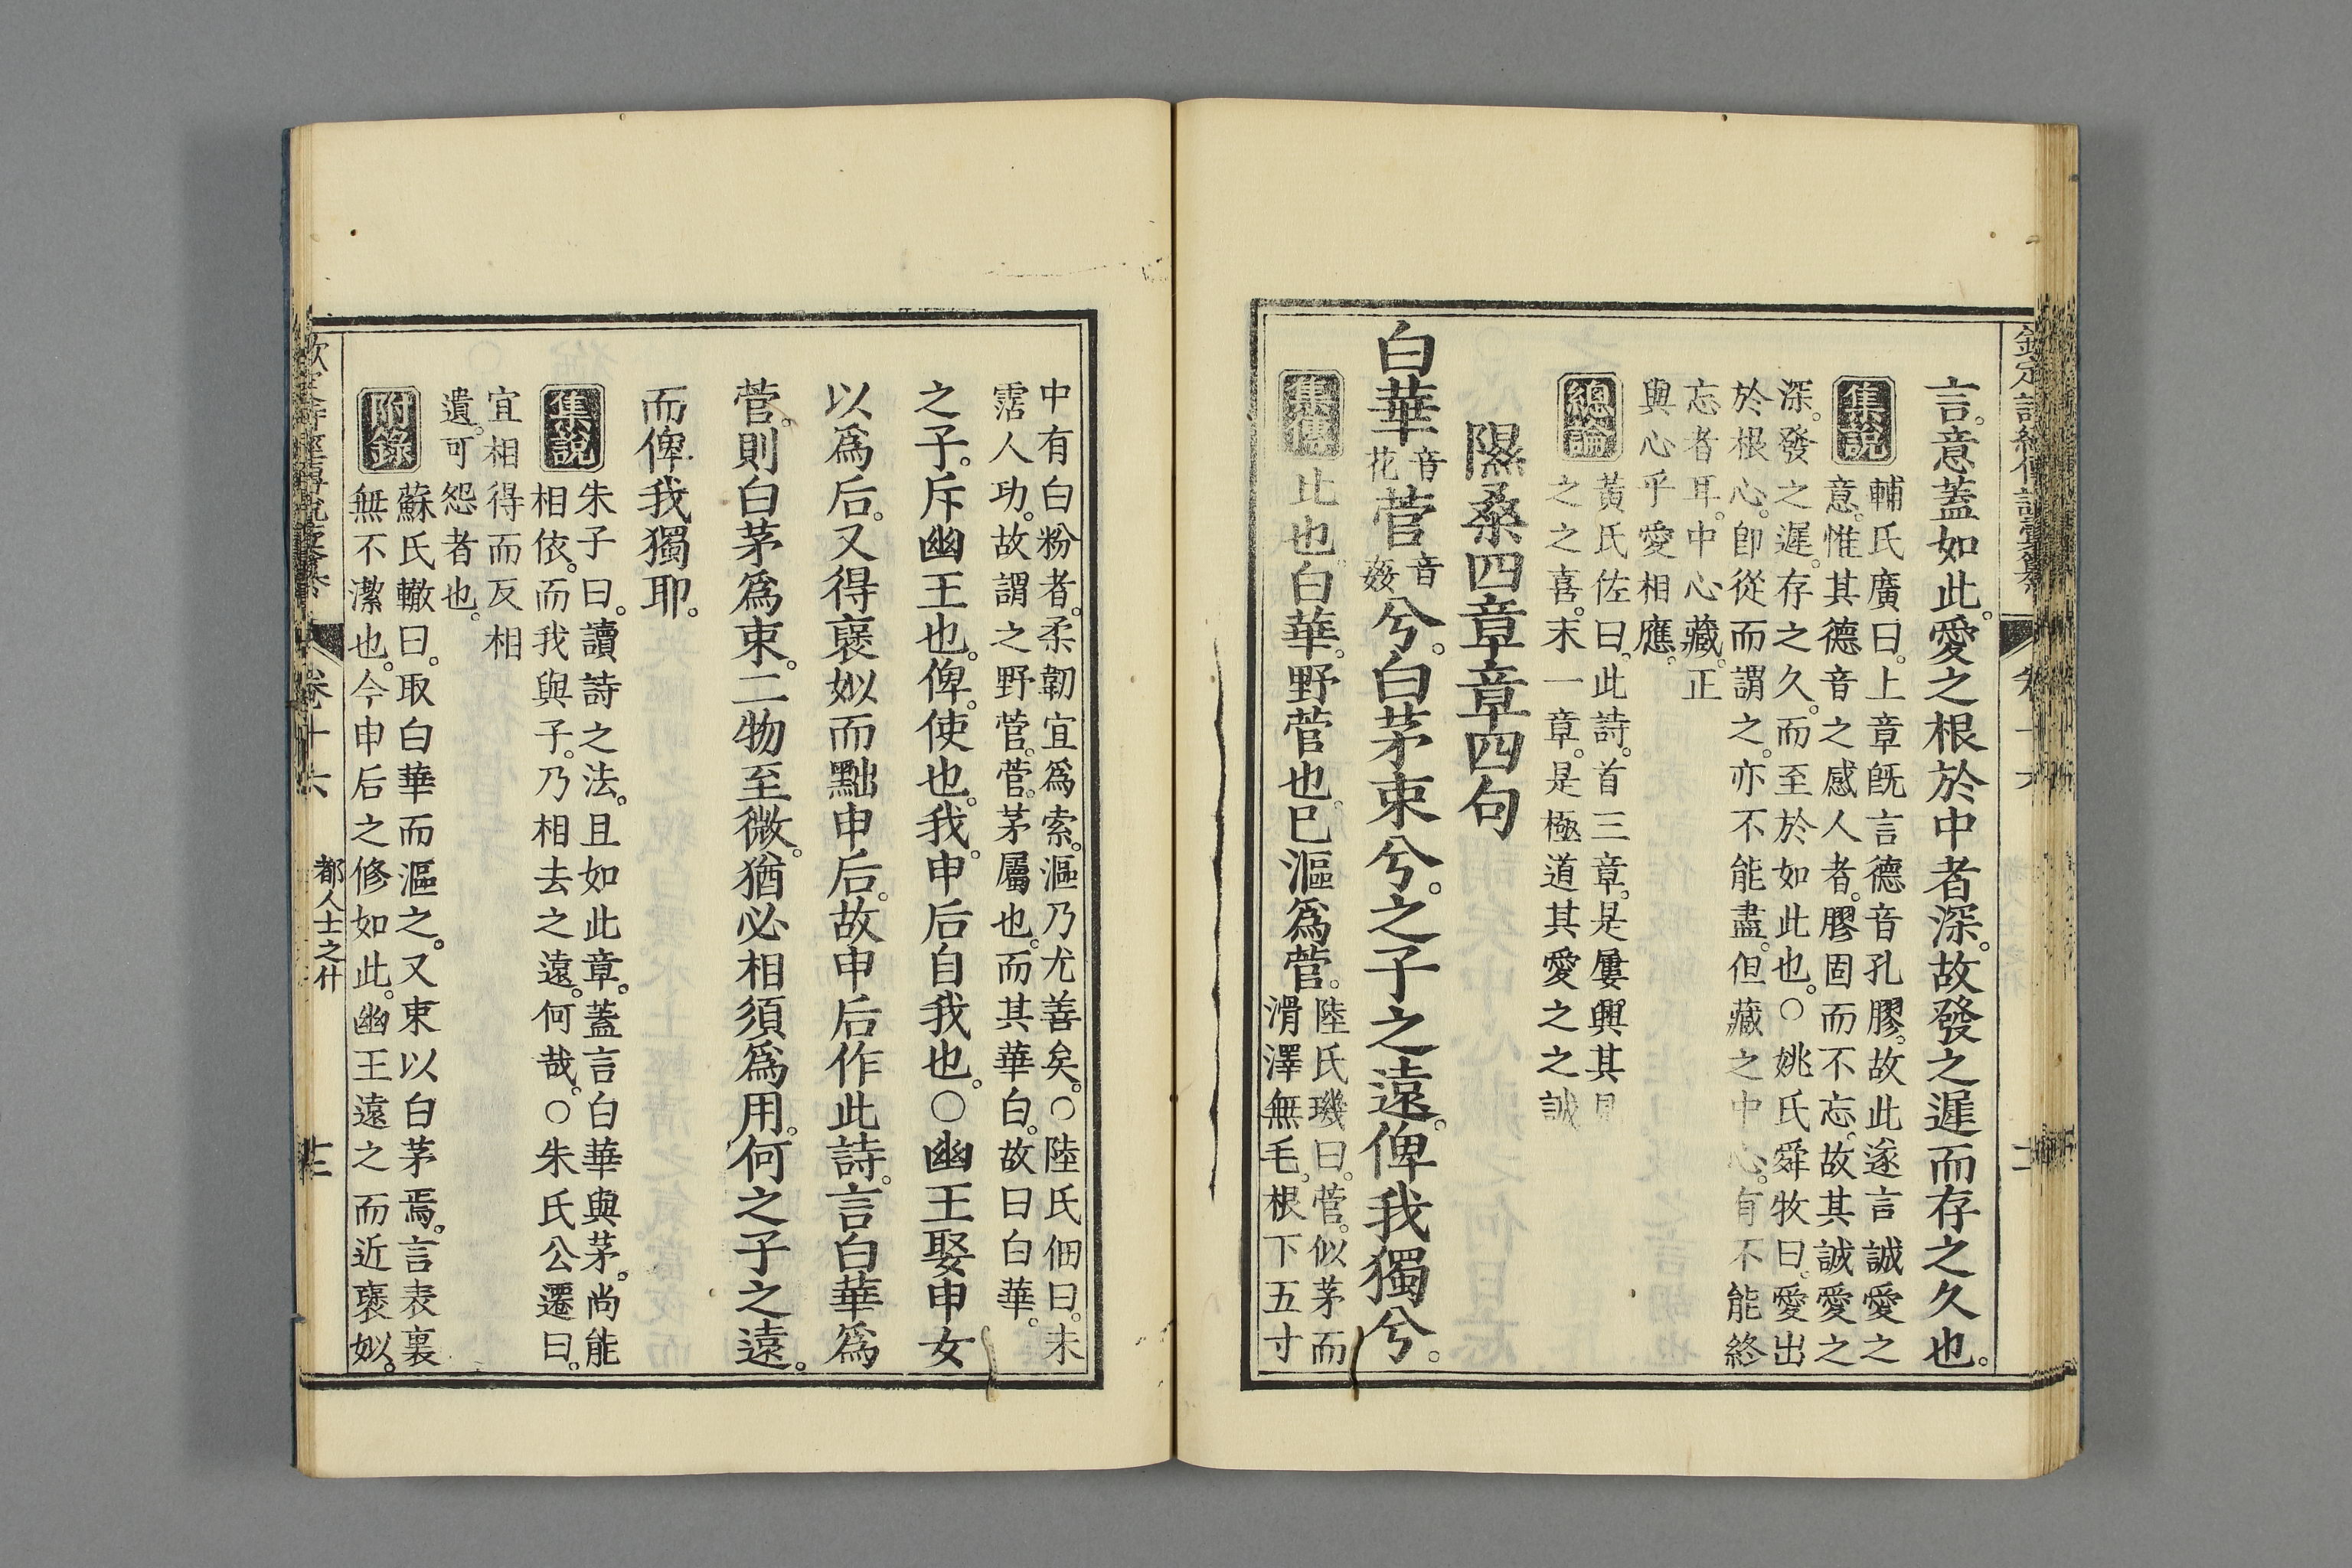 言。意蓋如此。愛之根於中者深。故發之遲而存之久也。
集說
輔氏廣曰。上章旣言德音孔膠。故此遂言誠愛之
意。惟其德音之感人者。膠固而不忘。故其誠愛之
深。發之遲。存之久。而至於如此也。○姚氏舜牧曰。愛出
於根心。卽從而謂之。亦不能盡。但藏之中心。有不能終
忘者耳。中心藏。正
與心乎愛相應。
總論
黃氏佐曰。此詩。首三章。是屢興其見
之之喜。末一章。是極道其愛之之誠
隰桑四章章四句
白華音花菅音姦兮。白茅束兮。之子之遠。俾我獨兮。
集傳
比也。白華。野菅也。已漚爲菅。
陸氏璣曰。菅。似茅而
滑澤無毛。根下五寸
中有白粉者。柔韌宜爲索。漚乃尤善矣。○陸氏佃曰。未
霑人功。故謂之野菅。菅。茅屬也。而其華白。故曰白華。
之子。斥幽王也。俾。使也。我。申后自我也。○幽王娶申女
以爲后。又得褒姒而黜申后。故申后作此詩。言白華爲
菅。則白茅爲束。二物至微。猶必相須爲用。何之子之遠。
而俾我獨耶。
集說
朱子曰。讀詩之法。且如此章。蓋言白華與茅。尚能
相依。而我與子。乃相去之遠。何哉。○朱氏公遷曰。
宜相得而反相
遺。可怨者也。
附錄
蘇氏轍曰。取白華而漚之。又束以白茅焉。言表裏
無不潔也。今申后之修如此。幽王遠之而近褒姒。
卷十六
都人士之什